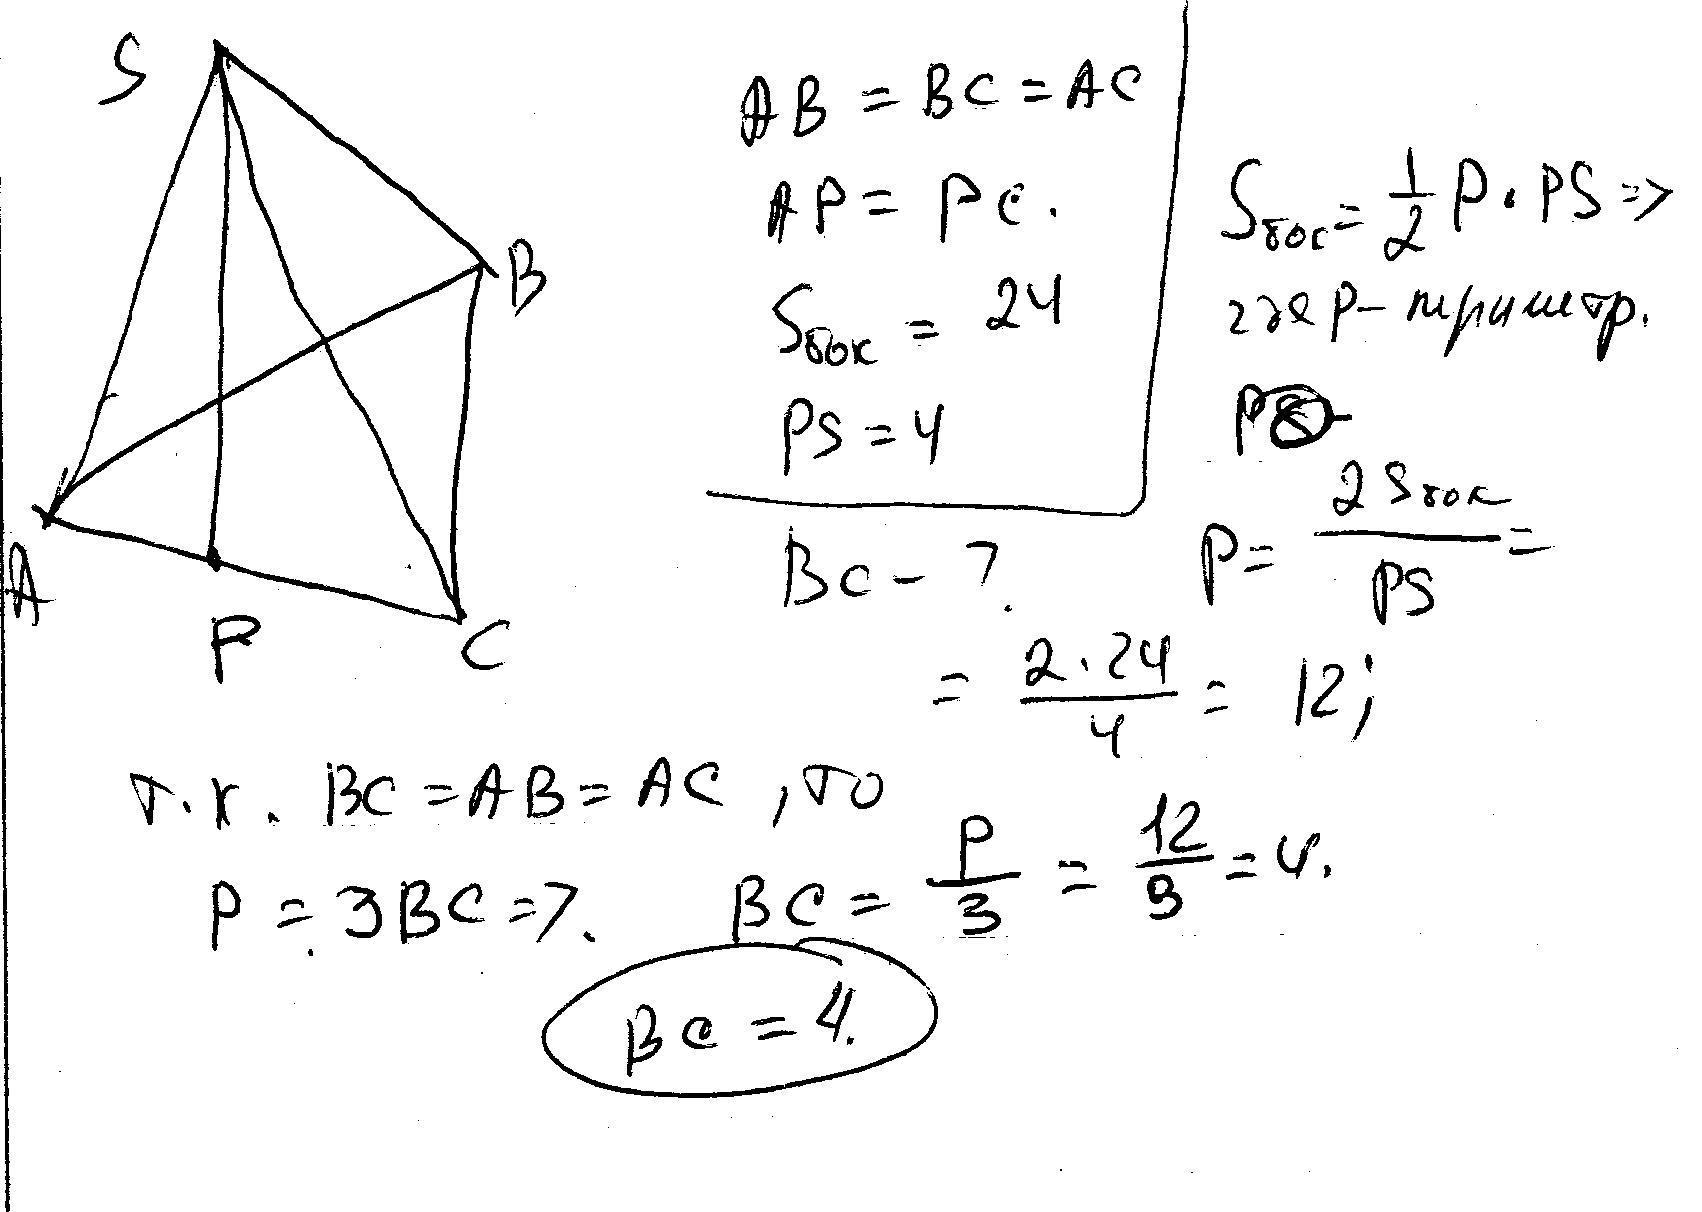 S
B
A
P
C
AB = BC = AC
AP = PC.
Sбок = 24
PS = 4
BC - ?
Sбок = 1/2 P · PS =>
где P - периметр.
P = 2Sбок / PS =
= 2 · 24 / 4 = 12;
т.к. BC = AB = AC, то
P = 3BC =>. BC = P/3 = 12/3 = 4.
BC = 4.